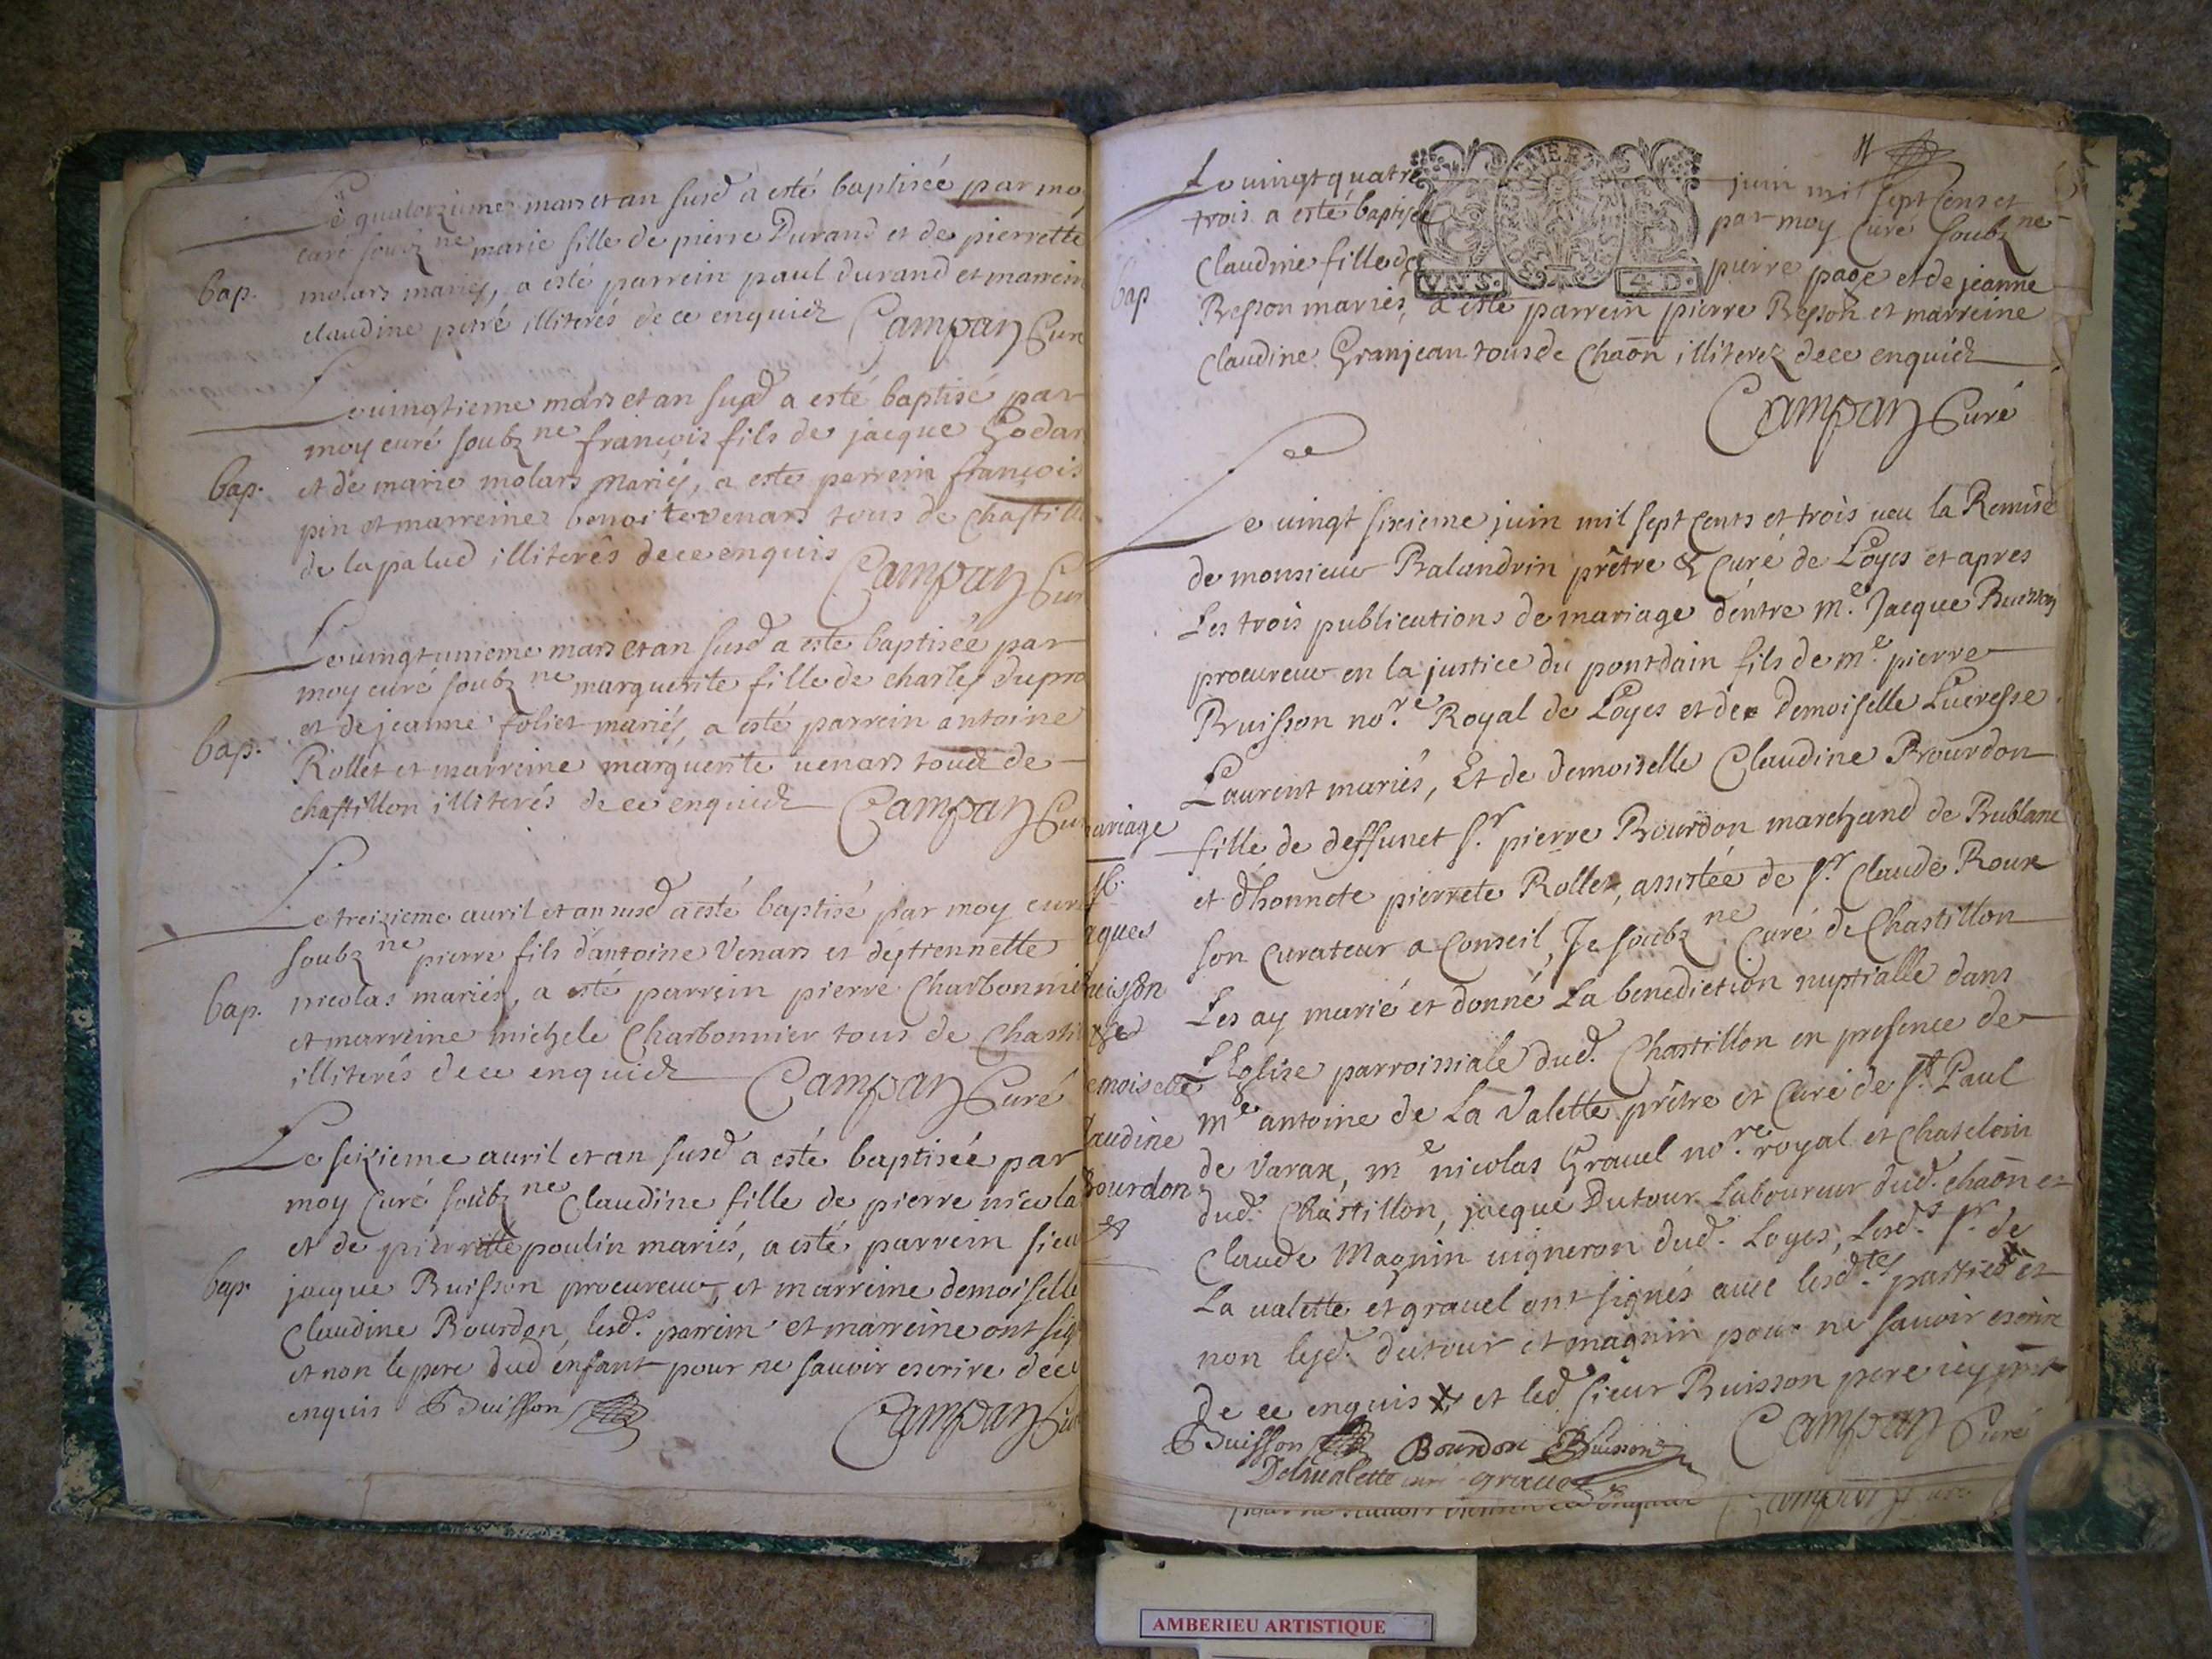 Le quatorzieme mars et an susd a esté baptisée par moy
curé soubz ne marie fille de pierre Durand et de pierrette
bap. molars mariés, a esté parrein paul durand et marrein
claudine petré illiterés de ce enquiez Campan Curé
Le uingtieme mars et an susd a esté baptisé par
moy curé soubz ne françois fils de jacque Godar
bap. et de marie molars mariés, a esté parrein françois
pin et marreine benoite venars tous de Chastill
de la palud illiterés de ce enquis Campan Cur
Le uingt unieme mars et an susd a esté baptisée par
moy curé soubz ne marguerite fille de charles dupra
et de jeanne foliet mariés, a esté parrein antoine
bap. Rollet et marreine marguerite uenars tous de
chastillon illiterés de ce enquiez Campan Cu
Le treizieme auril et an susd a esté baptisé par moy curé
soubz ne pierre fils d'antoine Venars et d'estiennette
bap. nicolas mariés, a esté parrein pierre Charbonnie
et marreine michele Charbonnier tous de Chasti
illiterés de ce enquiez Campan Curé
Le seizieme auril et an susd a esté baptisée par
moy Curé soubz ne Claudine fille de pierre nicola
et de pierrette poulin mariés, a esté parrein sieu
bap. jacque Buisson procureur, et marreine demoiselle
Claudine Bourdon, lesd. parrein et marreine ont sig
et non le pere dud enfant pour ne sauoir escrire de ce
enquis Buisson Campan Cu
Le uingt quatre juin mil sept Cens et
trois a esté baptisée par moy Curé soubz ne
GENER
VN S. 4 D.
Claudine fille de pierre page et de jeanne
bap Besson mariés, a esté parrein pierre Besson et marreine
Claudine Granjean tous de Chaōn illiterez de ce enquiez
Campan Curé
Le uingt sixieme juin mil sept Cents et trois ueu la Remise
de monsieur Balandrin prêtre & Curé de Loyes et apres
Les trois publications de mariage d'entre m.e Jacque Buisson
procureur en la justice du pontdain fils de m.e pierre
Buisson no.re Royal de Loyes et de Demoiselle Lucresse
Laurent mariés, Et de demoiselle Claudine Bourdon
mariage fille de deffunct s.r pierre Bourdon marchand de Rublanc
et d'honnete pierrete Rollet, assistée de s.r Claude Roux
aques son Curateur a Conseil, Je soubz ne Curé de Chastillon
uisson Les ay marié et donné La benediction nuptialle dans
L'Eglise parroissiale dud. Chastillon en presence de
emoiselle m.e antoine de La Valette prêtre et Curé de s.t Paul
laudine de Varax, m.e nicolas Grauel no.re royal et Chatelain
Bourdon dud. Chastillon, jacque Dutour Laboureur dud. chaōn et
Claude Magnin uigneron dud. Loyes, Lesd.s s.r de
La ualette et grauel ont signés auec lesd.tes parties et
non lesd. dutour et magnin pour ne sauoir escrire
de ce enquis et led. sieur Buisson pere icy
Buisson Bourdon Buisson Campan Curé
Delaualette grauel
AMBERIEU ARTISTIQUE